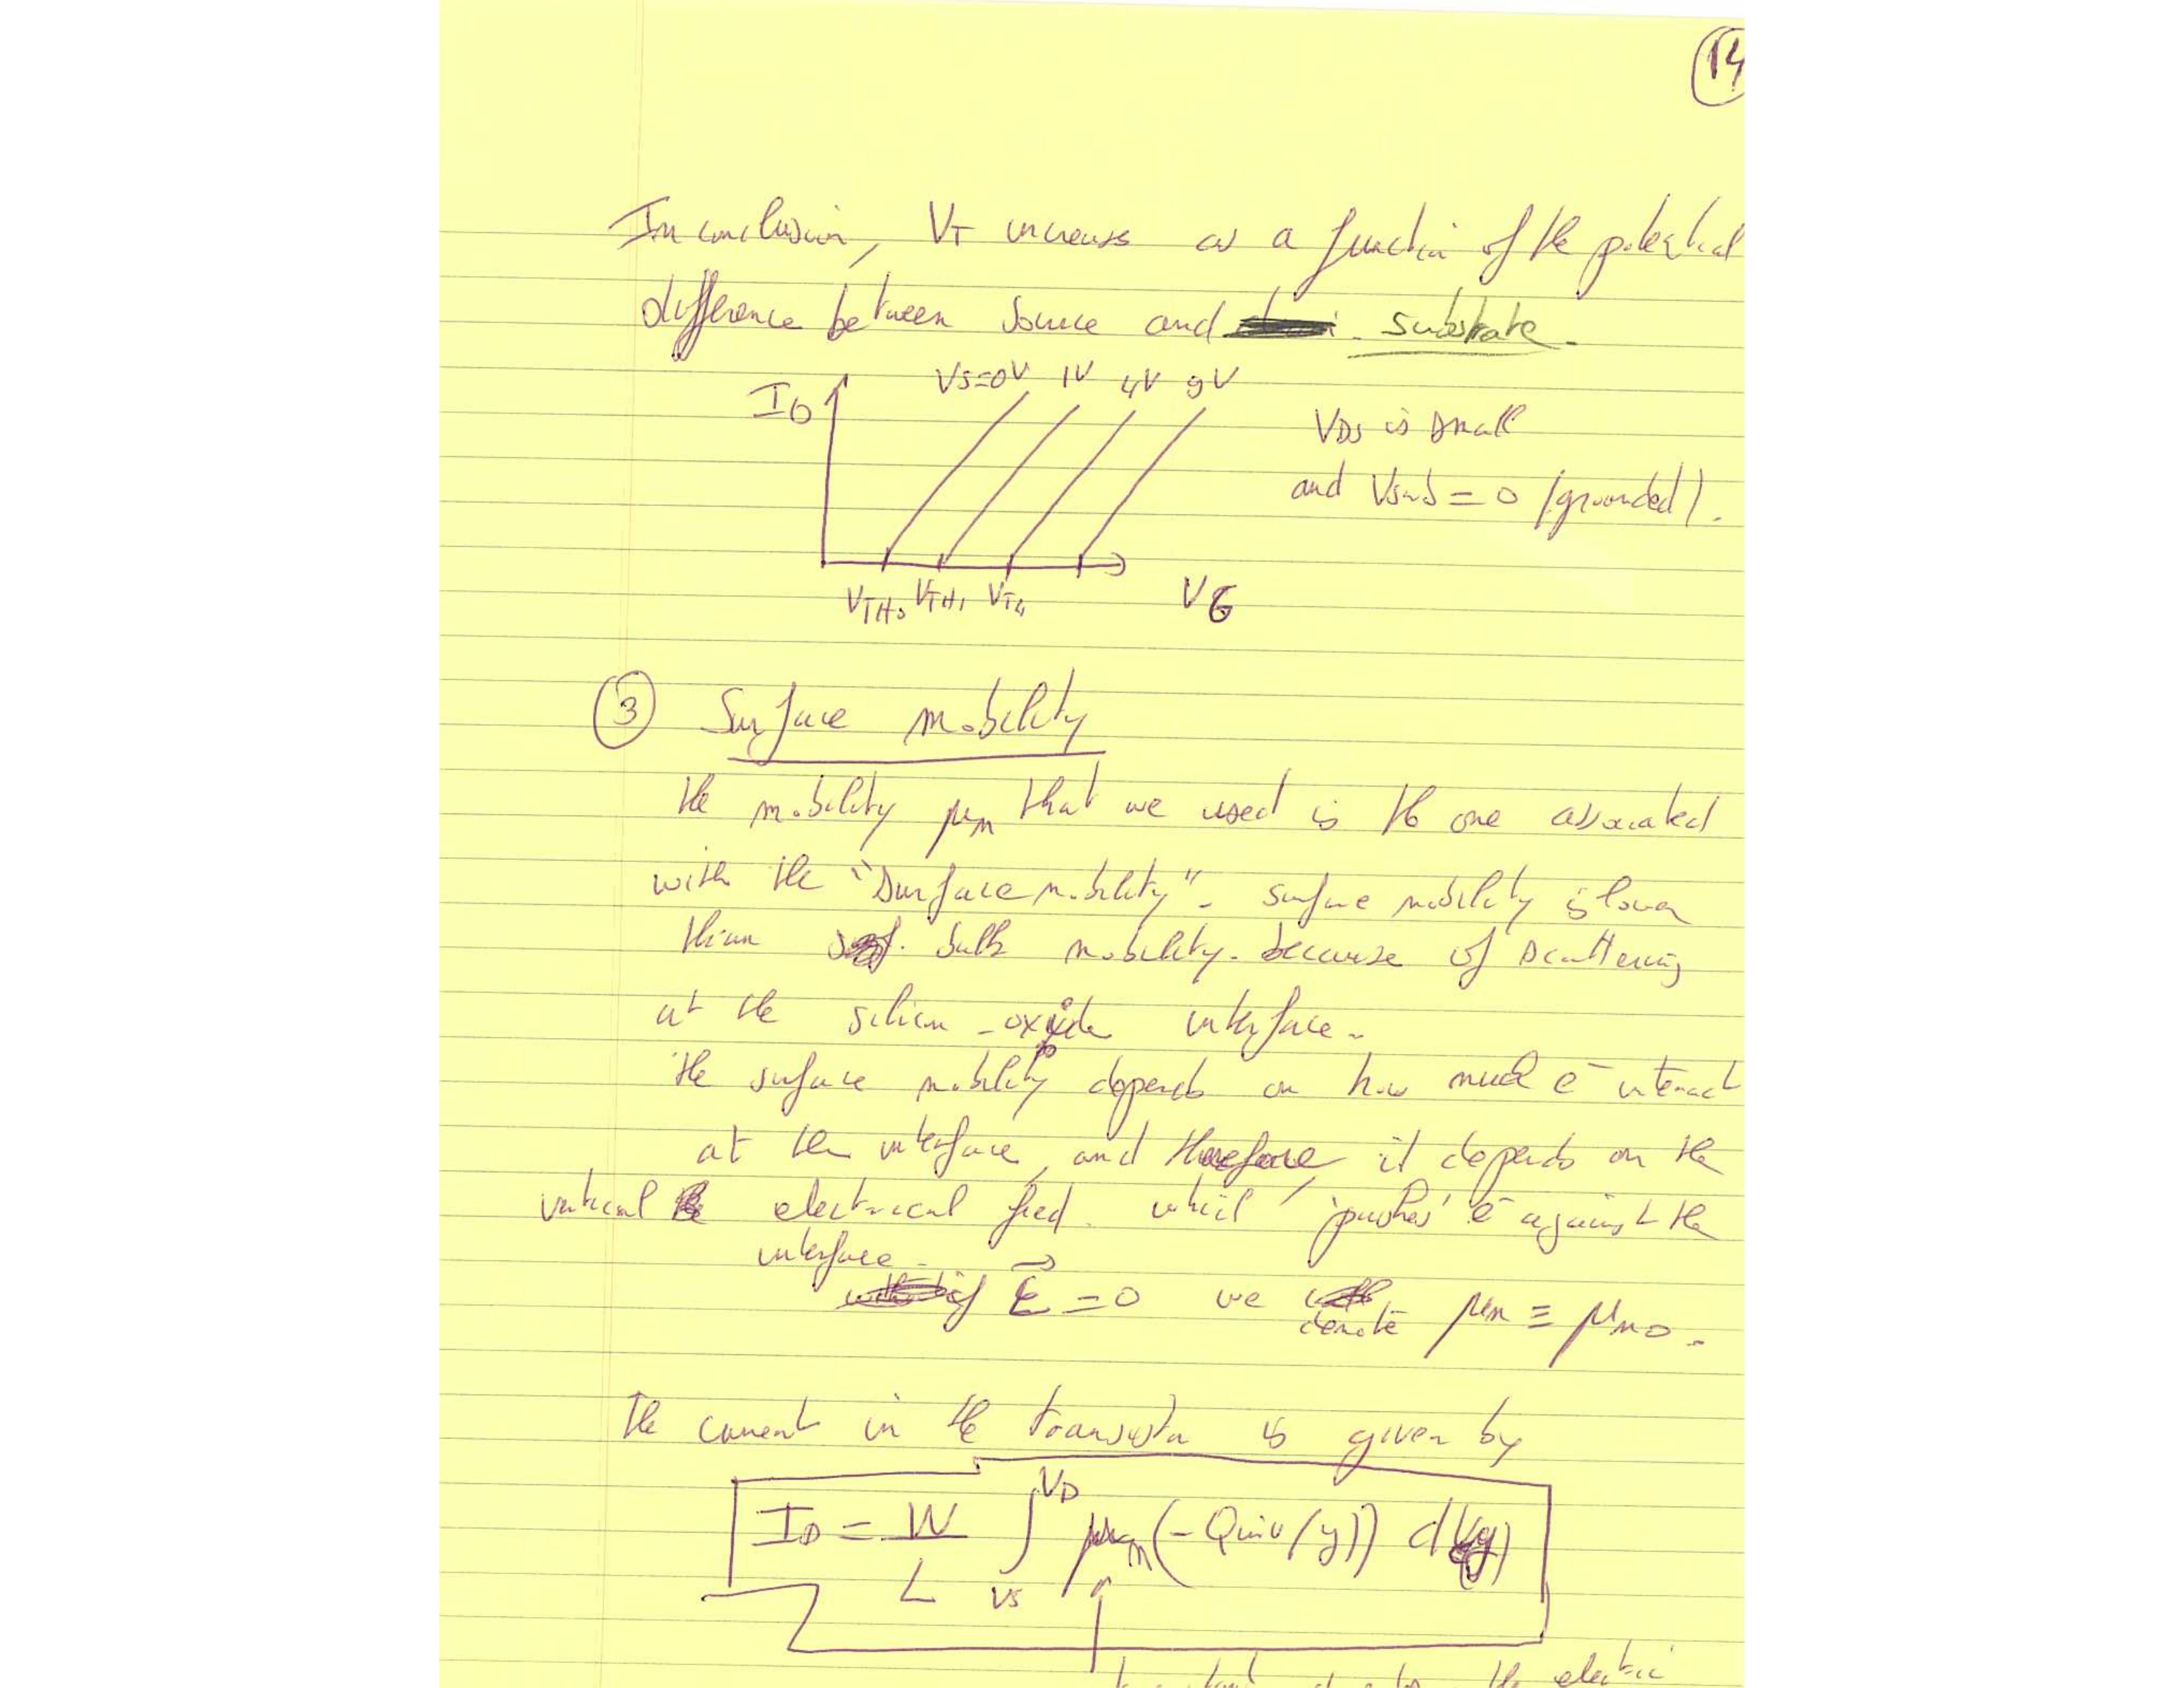 14
In conclusion, VT increases as a function of the potential
difference between source and substrate.
VS=0V 1V 4V 9V
ID
VDS is small
and Vsub = 0 (grounded).
VTH0 VTH1 VT4
VG
3 Surface mobility
the mobility μn that we used is the one associated
with the "surface mobility". surface mobility is lower
than bulk mobility. because of scattering
at the silicon-oxide interface.
the surface mobility depends on how much e- interact
at the interface, and therefore, it depends on the
vertical electrical fied. which 'pushes' e- against the
interface.
if E = 0 we denote μn ≡ μn0.
The current in the transistor is given by
ID = W/L ∫ VS VD μn (-Qinv(y)) dV(y)
the electric